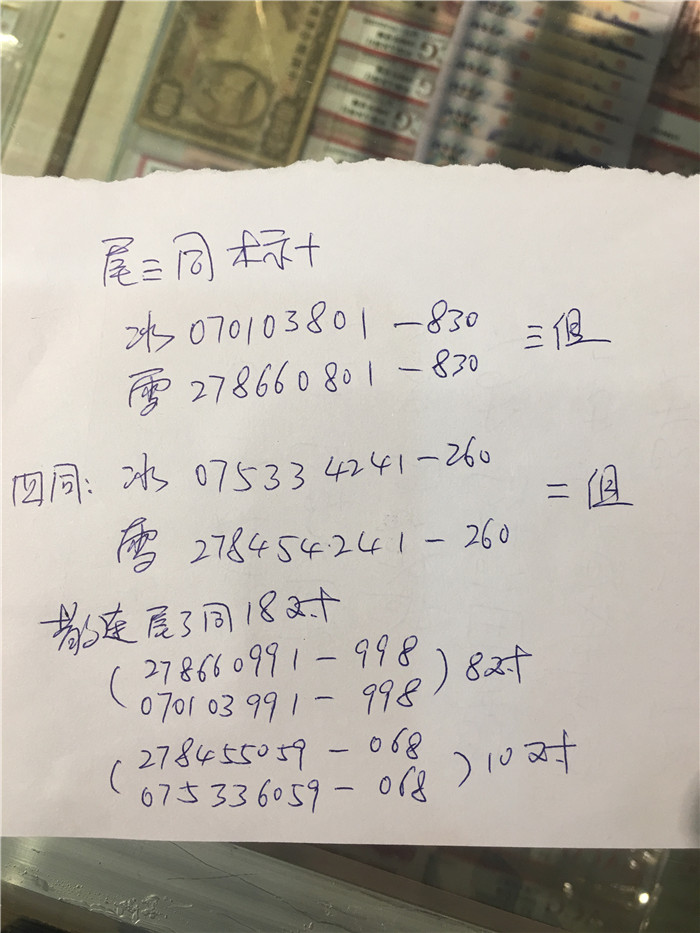 尾三同标十
冰 070103801-830 三组
雪 278660801-830
四同: 冰 075334241-260 二组
雪 278454241-260
散连尾3同18对
(278660991-998
070103991-998) 8对
(278455059-068
075336059-068) 10对